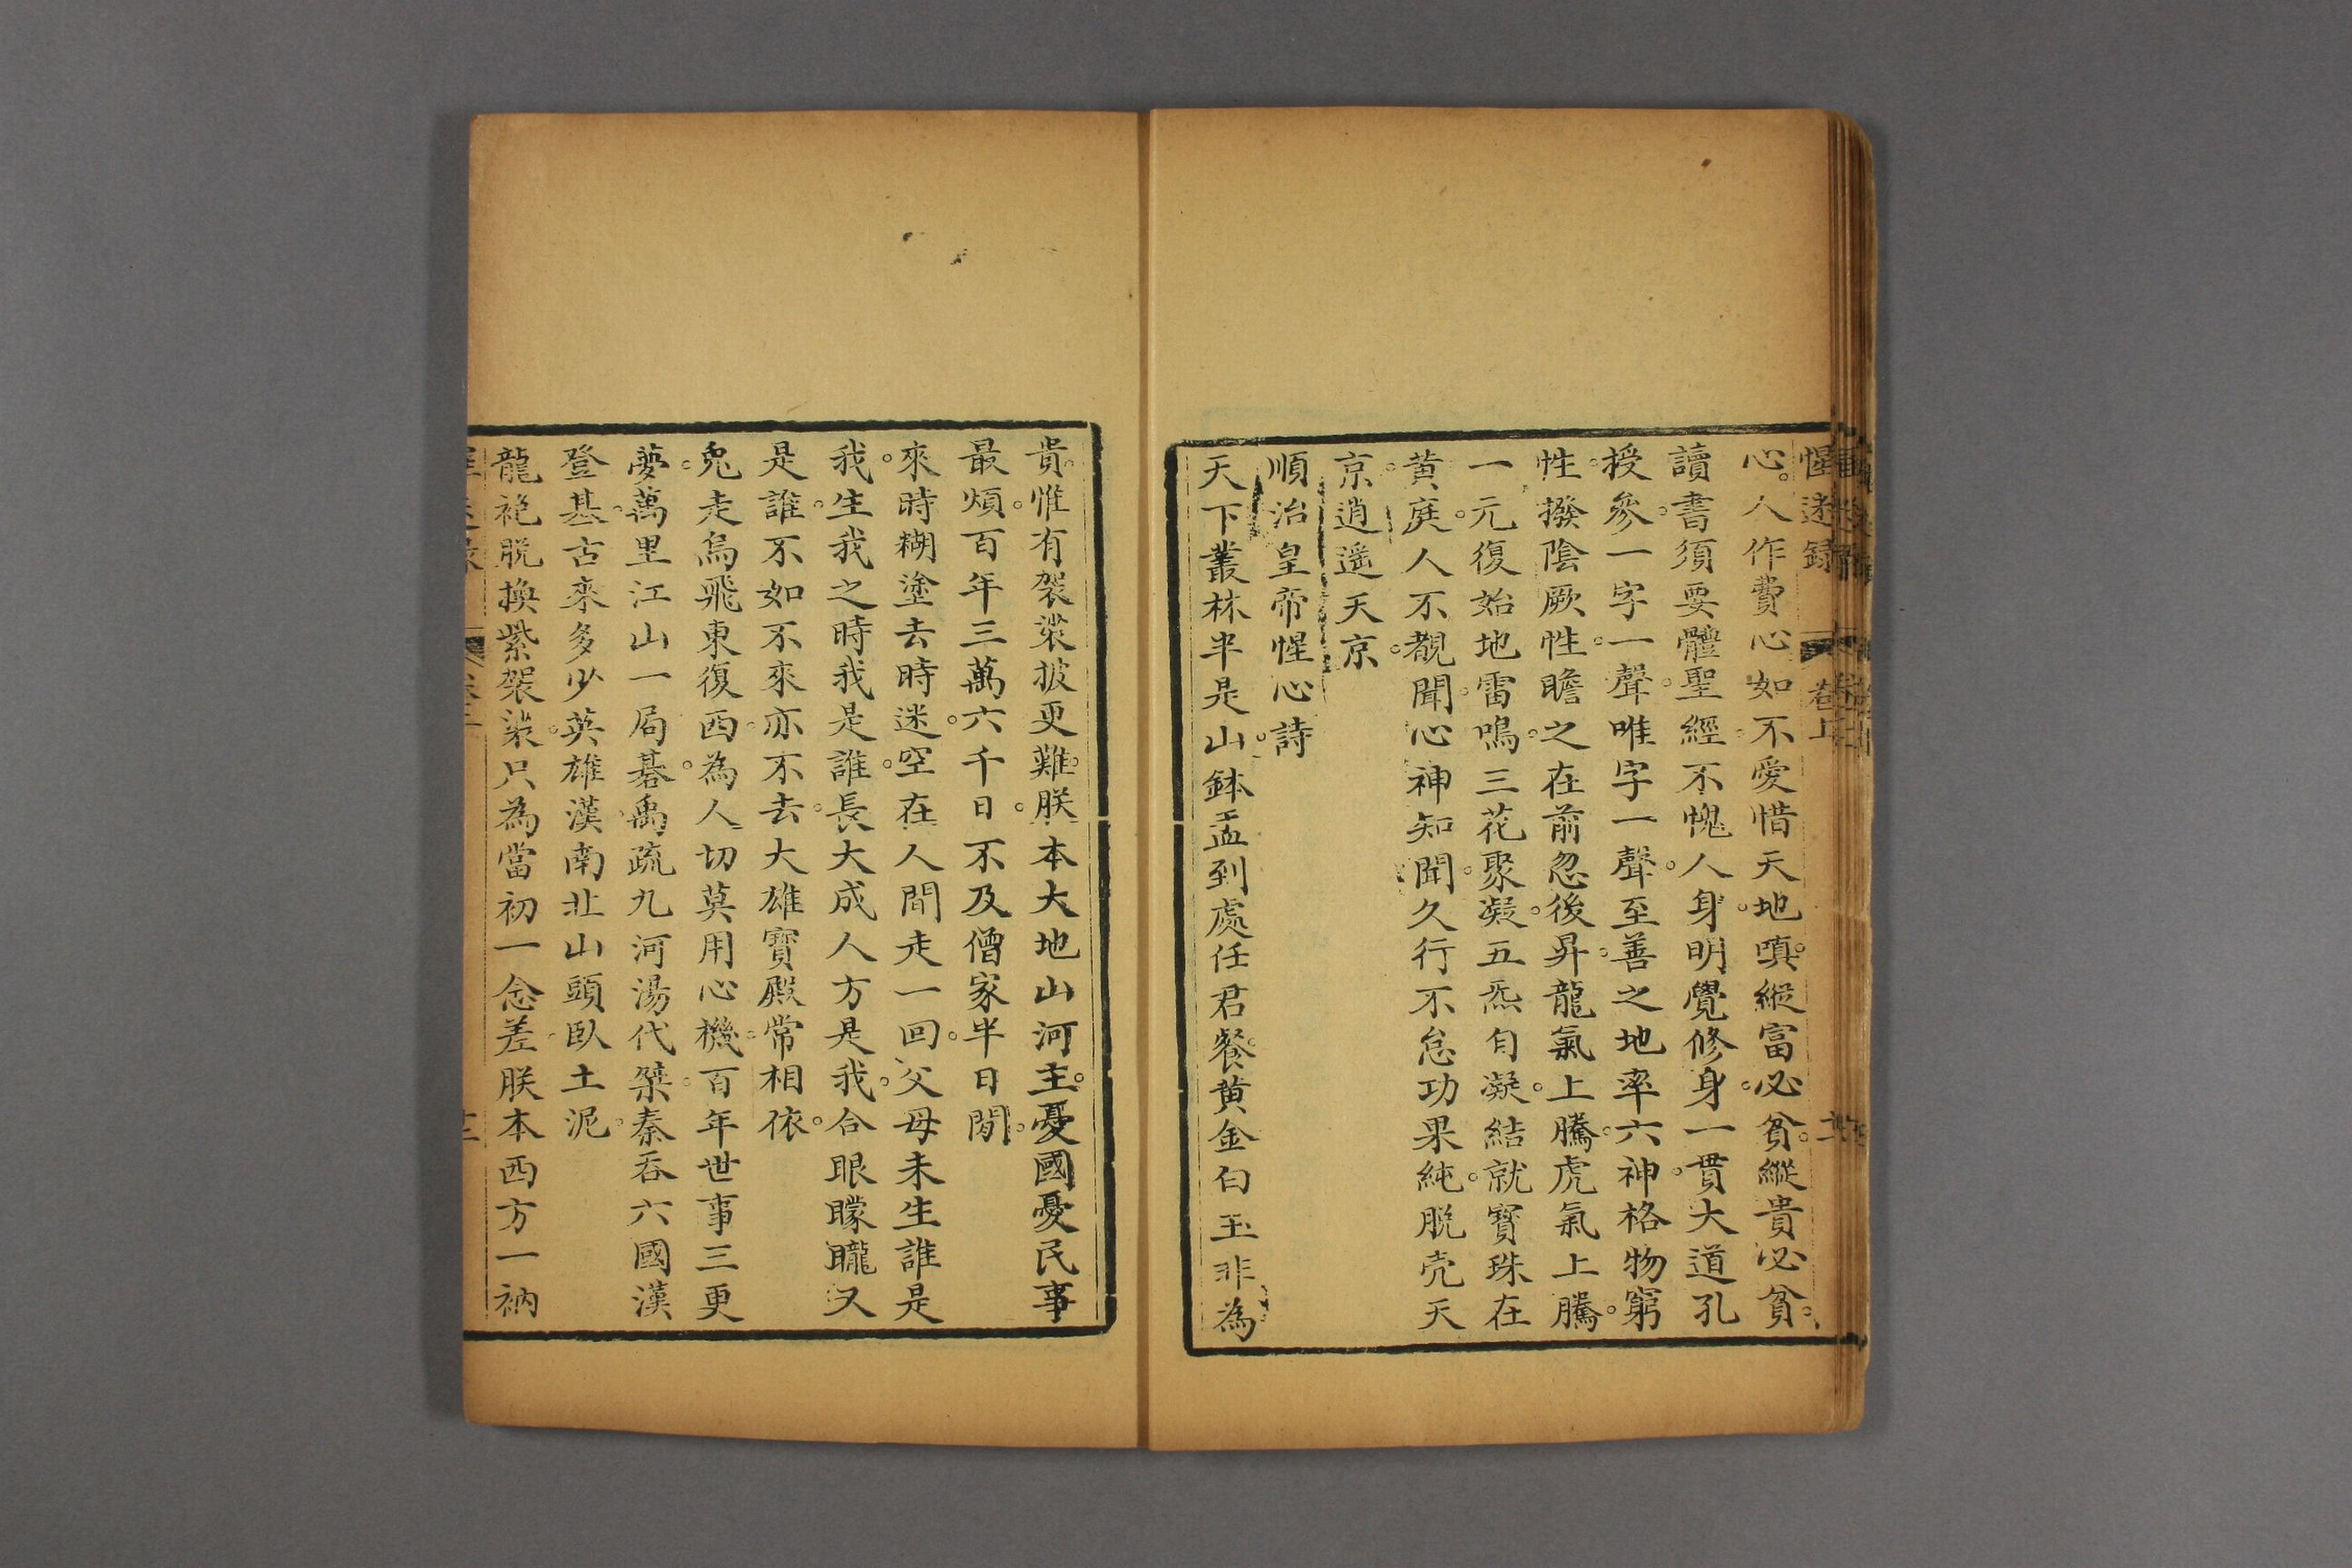 惺迷録 卷上
心。人作費心如不愛惜天地嗔。縱富必貧。縱貴必貧。
讀書須要體聖經。不愧人身。明覺修身。一貫大道孔
授參。一字一聲。唯字一聲。至善之地率六神。格物窮
性。撥陰厥性。瞻之在前忽後。昇龍氣上騰。虎氣上騰。
一元復始地雷鳴。三花聚凝。五炁自凝。結就寶珠在
黃庭。人不覩聞。心神知聞。久行不怠功果純。脫壳天
京。逍遥天京。
順治皇帝惺心詩
天下叢林半是山。鉢盂到處任君餐。黃金白玉非為
貴。惟有袈裟披更難。朕本大地山河主。憂國憂民事
最煩。百年三萬六千日。不及僧家半日閒。
來時糊塗去時迷。空在人間走一回。父母未生誰是
我。生我之時我是誰。長大成人方是我。合眼矇矓又
是誰。不如不來亦不去。大雄寳殿常相依。
兔走烏飛東復西。為人切莫用心機。百年世事三更
夢。萬里江山一局碁。禹疏九河湯代桀。秦吞六國漢
登基。古來多少英雄漢。南北山頭臥土泥。
龍袍脫換紫袈裟。只為當初一念差。朕本西方一衲